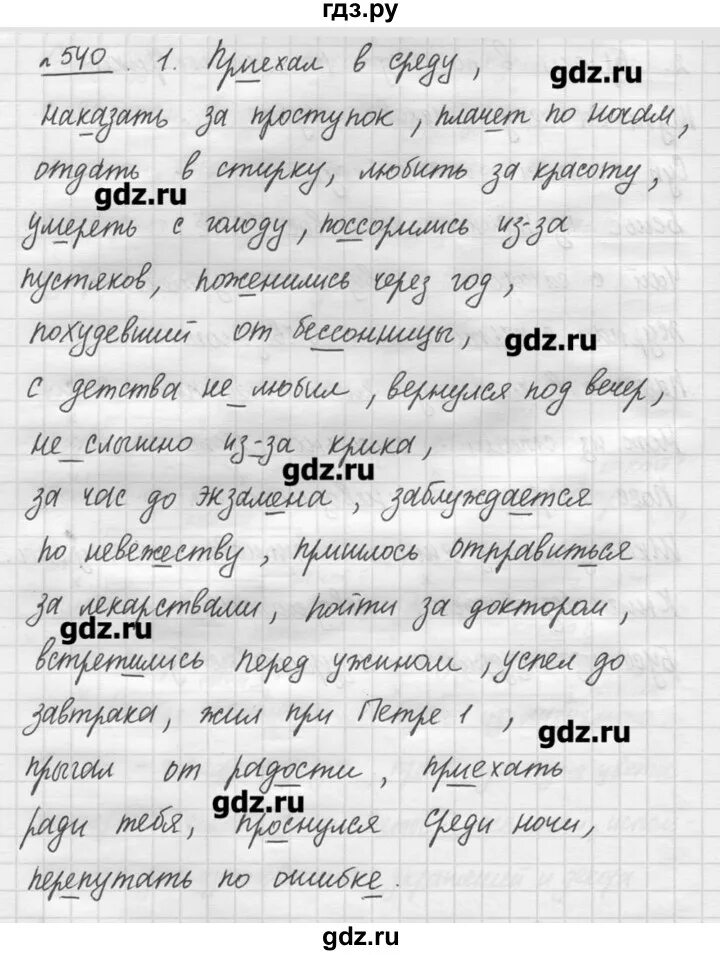 гдз.ру
№540. 1. Приехал в среду,
gdz.ru
наказать за проступок, плачет по ночам,
отдать в стирку, любить за красоту,
gdz.ru
умереть с голоду, поссорились из-за
пустяков, поженились через год,
похудевший от бессонницы,
gdz.ru
с детства не любил, вернулся под вечер,
не слышно из-за крика,
gdz.ru
за час до экзамена, заблуждается
по невежеству, пришлось отправиться
за лекарствами, пойти за доктором,
gdz.ru
встретились перед ужином, успел до
завтрака, жил при Петре 1,
gdz.ru
прыгал от радости, приехать
gdz.ru
ради тебя, проснулся среди ночи,
перепутать по ошибке.
gdz.ru